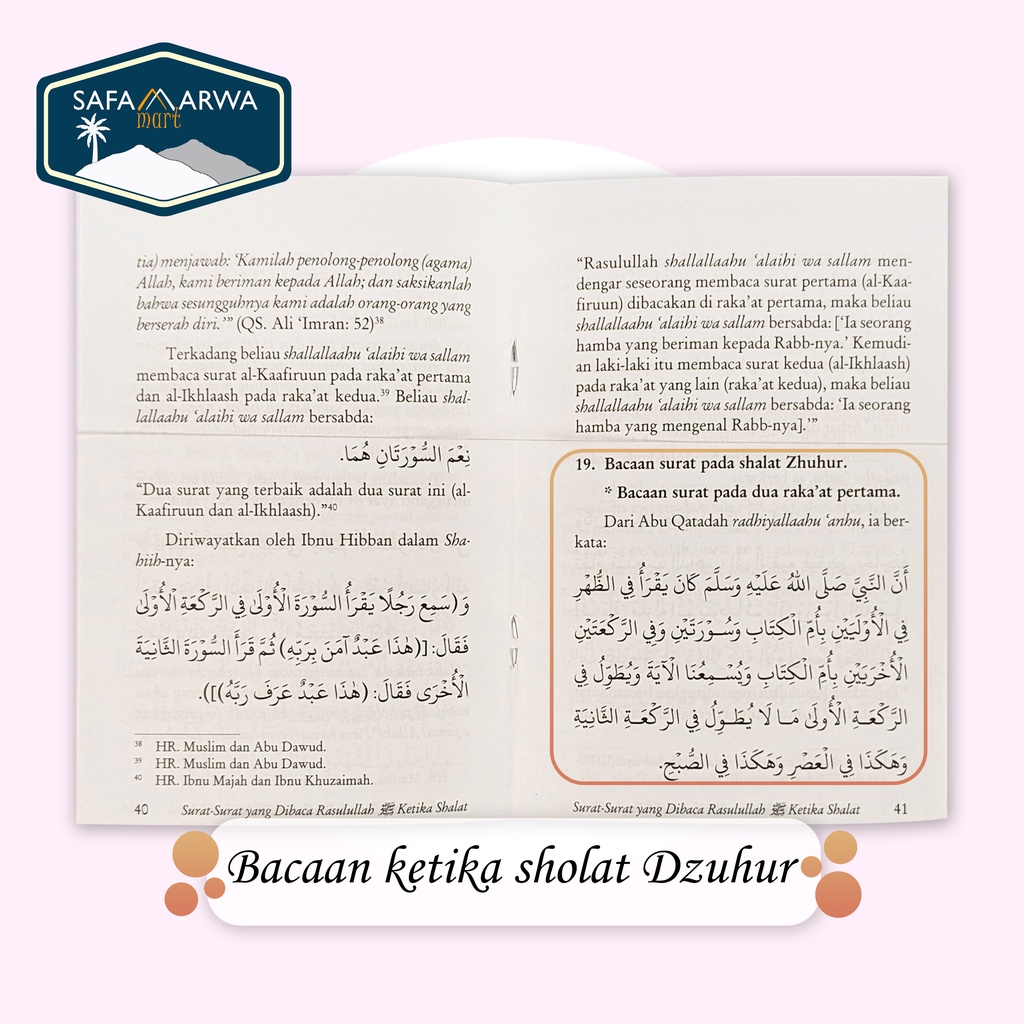 SAFA MARWA
mart
tia) menjawab: ‘Kamilah penolong-penolong (agama)
Allah, kami beriman kepada Allah; dan saksikanlah
bahwa sesungguhnya kami adalah orang-orang yang
berserah diri.’” (QS. Ali ‘Imran: 52)³⁸
Terkadang beliau shallallaahu ‘alaihi wa sallam
membaca surat al-Kaafiruun pada raka’at pertama
dan al-Ikhlaash pada raka’at kedua.³⁹ Beliau shal-
lallaahu ‘alaihi wa sallam bersabda:
نِعْمَ السُّوْرَتَانِ هُمَا.
“Dua surat yang terbaik adalah dua surat ini (al-
Kaafiruun dan al-Ikhlaash).”⁴⁰
Diriwayatkan oleh Ibnu Hibban dalam Sha-
hiih-nya:
وَ(سَمِعَ رَجُلًا يَقْرَأُ السُّوْرَةَ الْأُوْلَى فِي الرَّكْعَةِ الْأُوْلَى
فَقَالَ: [(هٰذَا عَبْدٌ آمَنَ بِرَبِّهِ) ثُمَّ قَرَأَ السُّوْرَةَ الثَّانِيَةَ
الْأُخْرَى فَقَالَ: (هٰذَا عَبْدٌ عَرَفَ رَبَّهُ)]).
³⁸ HR. Muslim dan Abu Dawud.
³⁹ HR. Muslim dan Abu Dawud.
⁴⁰ HR. Ibnu Majah dan Ibnu Khuzaimah.
40 Surat-Surat yang Dibaca Rasulullah ﷺ Ketika Shalat
“Rasulullah shallallaahu ‘alaihi wa sallam men-
dengar seseorang membaca surat pertama (al-Kaa-
firuun) dibacakan di raka’at pertama, maka beliau
shallallaahu ‘alaihi wa sallam bersabda: [‘Ia seorang
hamba yang beriman kepada Rabb-nya.’ Kemudi-
an laki-laki itu membaca surat kedua (al-Ikhlaash)
pada raka’at yang lain (raka’at kedua), maka beliau
shallallaahu ‘alaihi wa sallam bersabda: ‘Ia seorang
hamba yang mengenal Rabb-nya].’”
19. Bacaan surat pada shalat Zhuhur.
* Bacaan surat pada dua raka’at pertama.
Dari Abu Qatadah radhiyallaahu ‘anhu, ia ber-
kata:
أَنَّ النَّبِيَّ صَلَّى اللهُ عَلَيْهِ وَسَلَّمَ كَانَ يَقْرَأُ فِي الظُّهْرِ
فِي الْأُوْلَيَيْنِ بِأُمِّ الْكِتَابِ وَسُوْرَتَيْنِ وَفِي الرَّكْعَتَيْنِ
الْأُخْرَيَيْنِ بِأُمِّ الْكِتَابِ وَيُسْمِعُنَا الْآيَةَ وَيُطَوِّلُ فِي
الرَّكْعَةِ الْأُولَى مَا لَا يُطَوِّلُ فِي الرَّكْعَةِ الثَّانِيَةِ
وَهَكَذَا فِي الْعَصْرِ وَهَكَذَا فِي الصُّبْحِ.
Surat-Surat yang Dibaca Rasulullah ﷺ Ketika Shalat 41
Bacaan ketika sholat Dzuhur